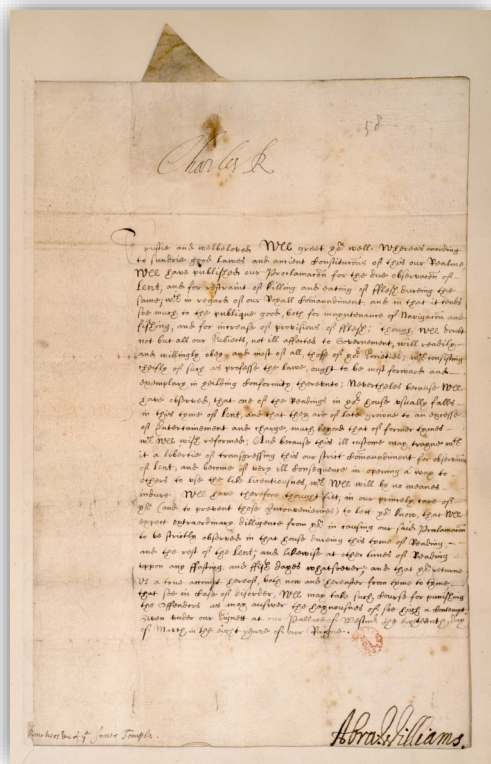 58
Charles R
Trustie and welbeloved Wee greet you well: Whereas according
to sundrie good Lawes and antient Constitutions of this our Realme,
Wee have published our Proclamation for the due observation of
Lent, and for restraint of killing and eating of fflesh dureing the
same, wch in regard of our Royall Comaundement, and in that it tends
soe much to the publique good, both for maintenance of Navigacion and
fishing, and for increase of provisions of fflesh; though Wee doubt
not but all our Subiects, not ill affected to Government, will readily
and willingly obey, and most of all, those of yor Societies; wch consisting
cheifly of such as professe the lawe, ought to be most forward and
exemplary in yeilding Conformity thereunto; Nevertheles because Wee
have observed, that one of the Readings in yor house usually falls
in this tyme of Lent, and that they are of late growne to an excesse
of Entertainement and charge, much beyond that of former tymes
wch Wee wish reformed; And because this ill custome may drawe wth
it a libertie of transgressing this our strict Comaundement for observing
of Lent, and become of very ill consequence in opening a way to
others to use the like licentiousnes, wch Wee will by no meanes
indure. Wee have therefore thought fitt, in our princely care of
you (and to prevent those Inconveniences) to let you know, that Wee
expect extraordinary diligence from you in causing our said Proclamation
to be strictly observed in that house dureing this tyme of Reading
and the rest of the Lent; and likewise at other times of Reading
uppon any ffasting and ffish dayes whatsoever; and that you returne
us a true accompt hereof, both now and hereafter from tyme to tyme,
that soe in case of disorder, Wee may take such course for punishing
the Offenders as may answer the haynousnes of soe high a Contempt.
Given under our Signet at our Pallace of Westmr the eighteenth day
of March in the eight yeare of our Raigne.
Benchers of ye Inner Temple.
Abra: Williams.